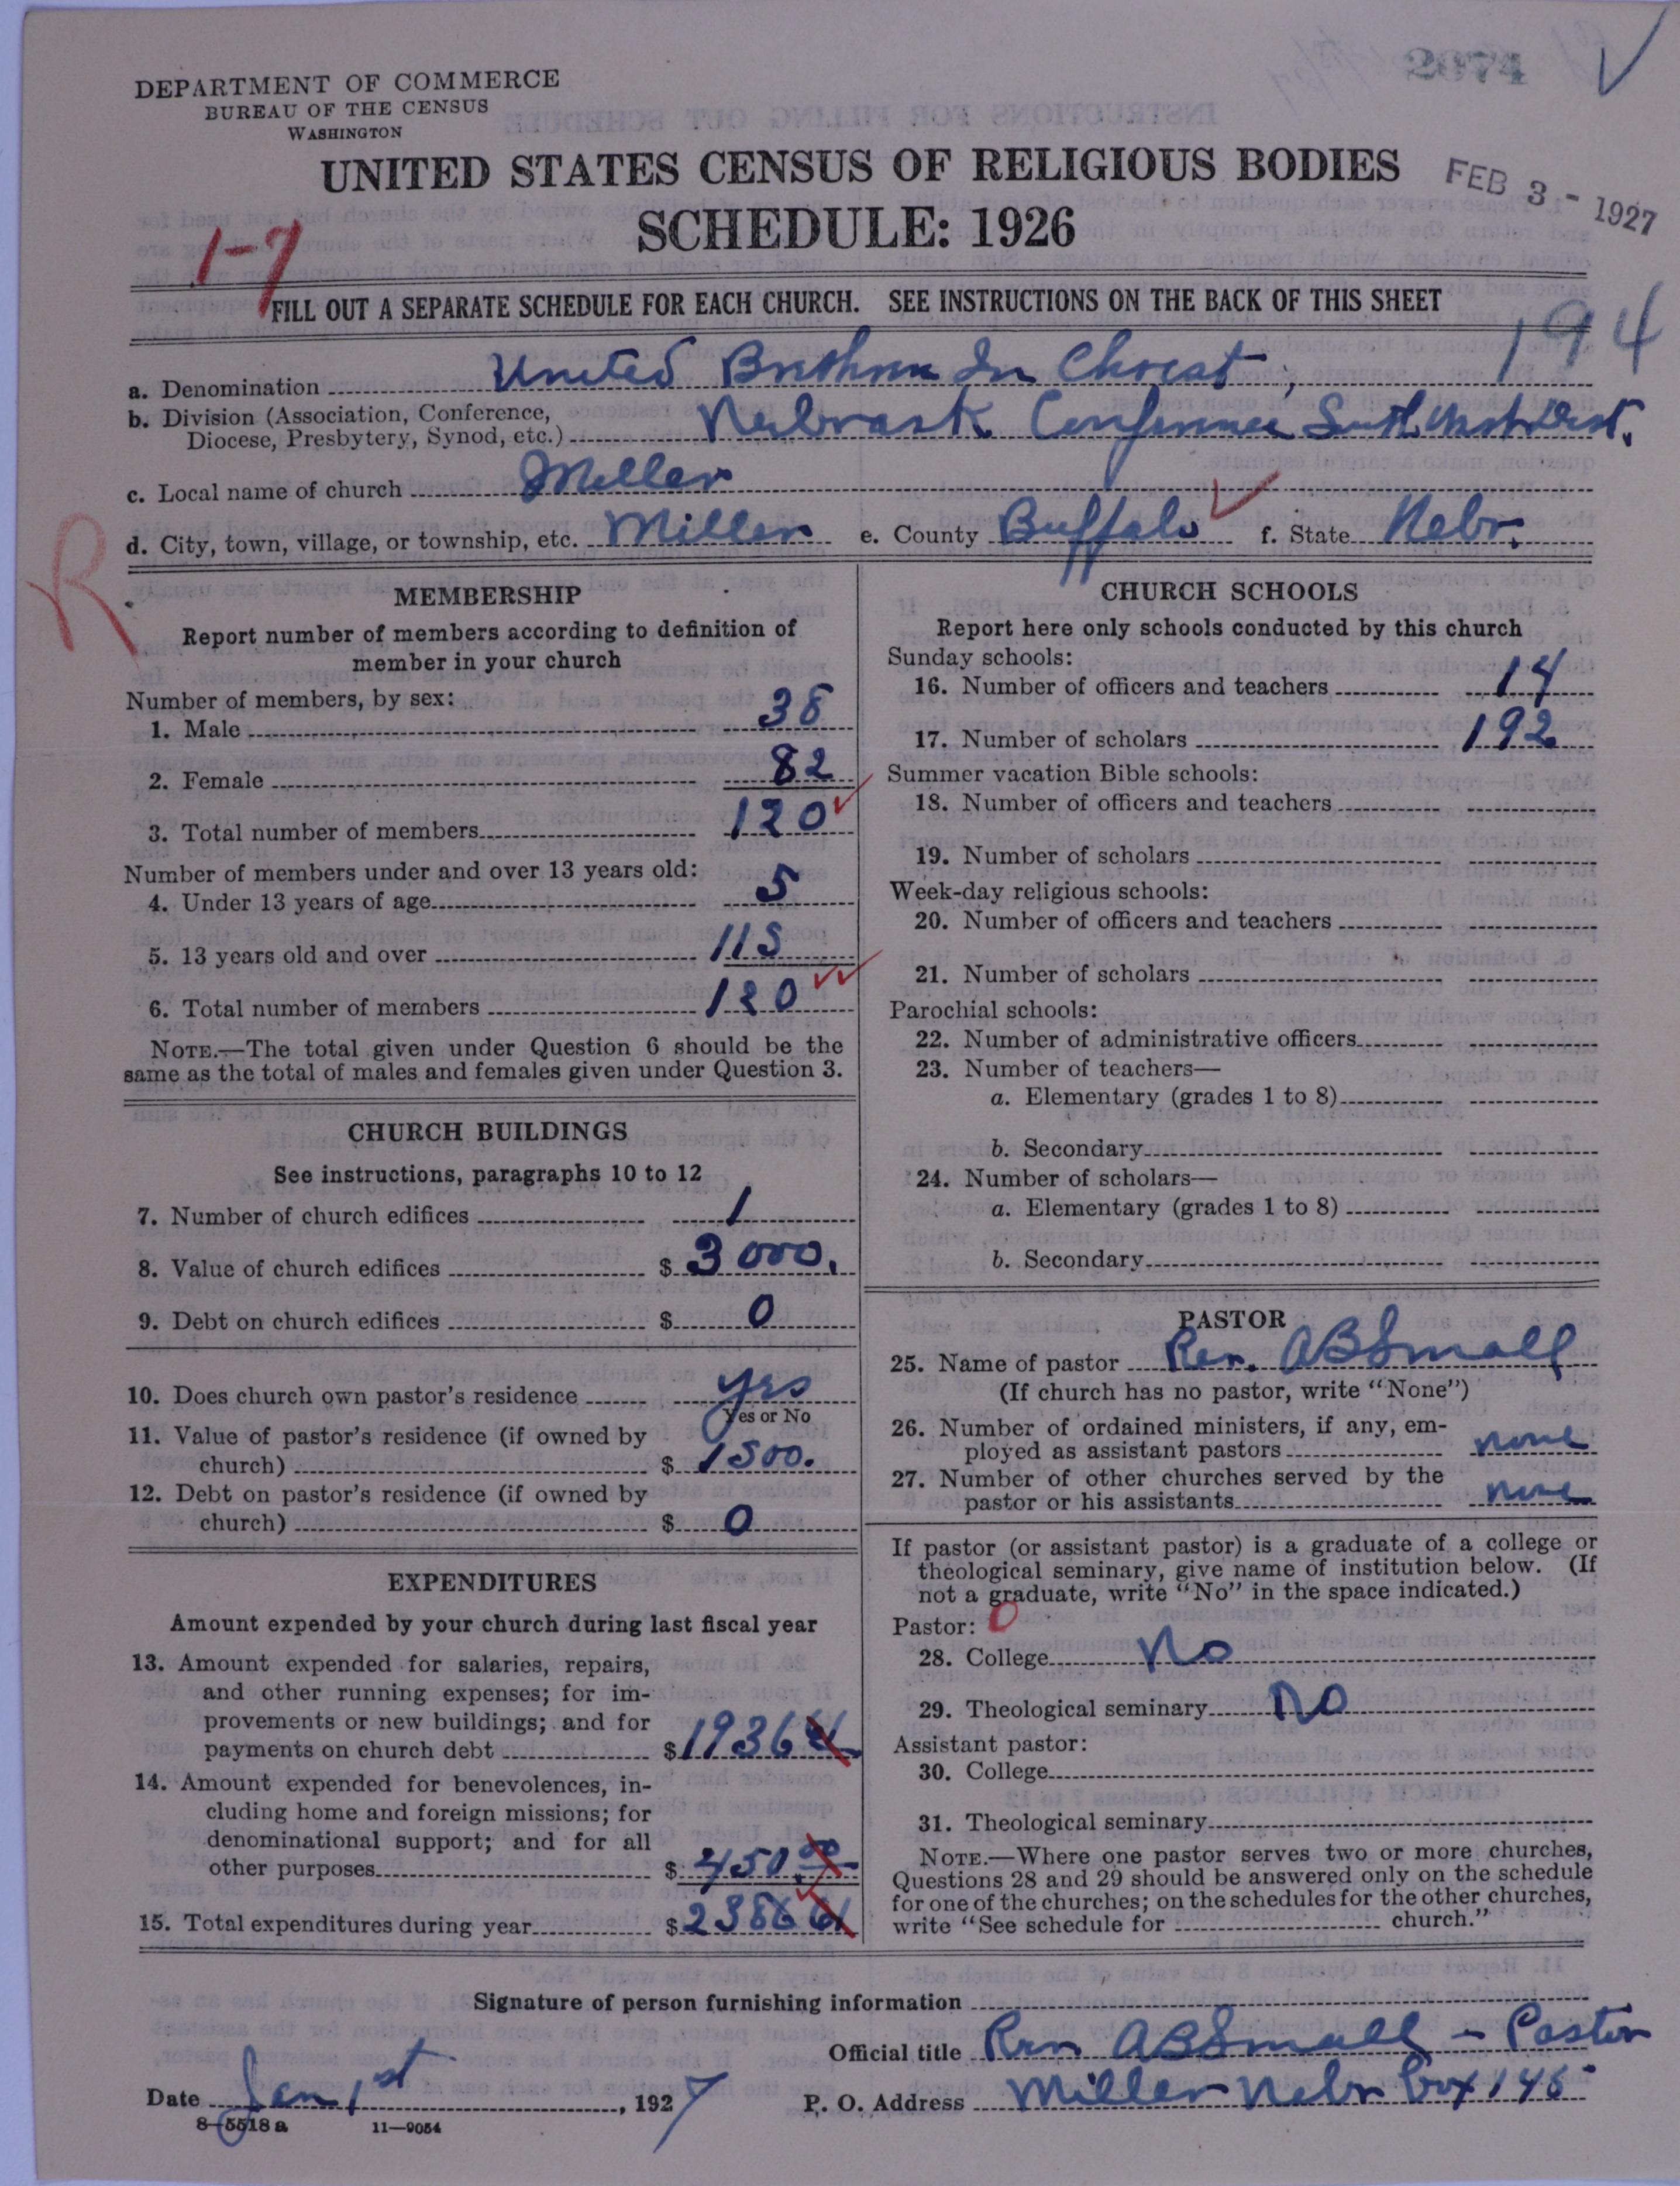 2874
DEPARTMENT OF COMMERCE
BUREAU OF THE CENSUS
WASHINGTON
UNITED STATES CENSUS OF RELIGIOUS BODIES
SCHEDULE: 1926
FEB 3 - 1927
1-7
FILL OUT A SEPARATE SCHEDULE FOR EACH CHURCH. SEE INSTRUCTIONS ON THE BACK OF THIS SHEET
194
a. Denomination United Brethren In Christ
b. Division (Association, Conference,
Diocese, Presbytery, Synod, etc.) Nebrask Conference South West Dist.
c. Local name of church Miller
d. City, town, village, or township, etc. Miller e. County Buffalo f. State Nebr.
R
MEMBERSHIP
Report number of members according to definition of
member in your church
Number of members, by sex:
1. Male 38
2. Female 82
3. Total number of members 120
Number of members under and over 13 years old:
4. Under 13 years of age 5
5. 13 years old and over 115
6. Total number of members 120
NOTE.—The total given under Question 6 should be the
same as the total of males and females given under Question 3.
CHURCH BUILDINGS
See instructions, paragraphs 10 to 12
7. Number of church edifices 1
8. Value of church edifices $ 3000.
9. Debt on church edifices $ 0
10. Does church own pastor's residence yes
Yes or No
11. Value of pastor's residence (if owned by
church) $ 1500.
12. Debt on pastor's residence (if owned by
church) $ 0
EXPENDITURES
Amount expended by your church during last fiscal year
13. Amount expended for salaries, repairs,
and other running expenses; for im-
provements or new buildings; and for
payments on church debt $ 1936
14. Amount expended for benevolences, in-
cluding home and foreign missions; for
denominational support; and for all
other purposes $ 450.00
15. Total expenditures during year $ 2386
CHURCH SCHOOLS
Report here only schools conducted by this church
Sunday schools:
16. Number of officers and teachers 14
17. Number of scholars 192
Summer vacation Bible schools:
18. Number of officers and teachers
19. Number of scholars
Week-day religious schools:
20. Number of officers and teachers
21. Number of scholars
Parochial schools:
22. Number of administrative officers
23. Number of teachers—
a. Elementary (grades 1 to 8)
b. Secondary
24. Number of scholars—
a. Elementary (grades 1 to 8)
b. Secondary
PASTOR
25. Name of pastor Rev. AB Small
(If church has no pastor, write "None")
26. Number of ordained ministers, if any, em-
ployed as assistant pastors none
27. Number of other churches served by the
pastor or his assistants none
If pastor (or assistant pastor) is a graduate of a college or
theological seminary, give name of institution below. (If
not a graduate, write "No" in the space indicated.)
Pastor: 0
28. College No
29. Theological seminary no
Assistant pastor:
30. College
31. Theological seminary
NOTE.—Where one pastor serves two or more churches,
Questions 28 and 29 should be answered only on the schedule
for one of the churches; on the schedules for the other churches,
write "See schedule for church."
Signature of person furnishing information
Official title Rev AB Small - Pastor
Date Jan 1st, 1927 P. O. Address Miller Nebr Box 145
8-5518 a 11—9054